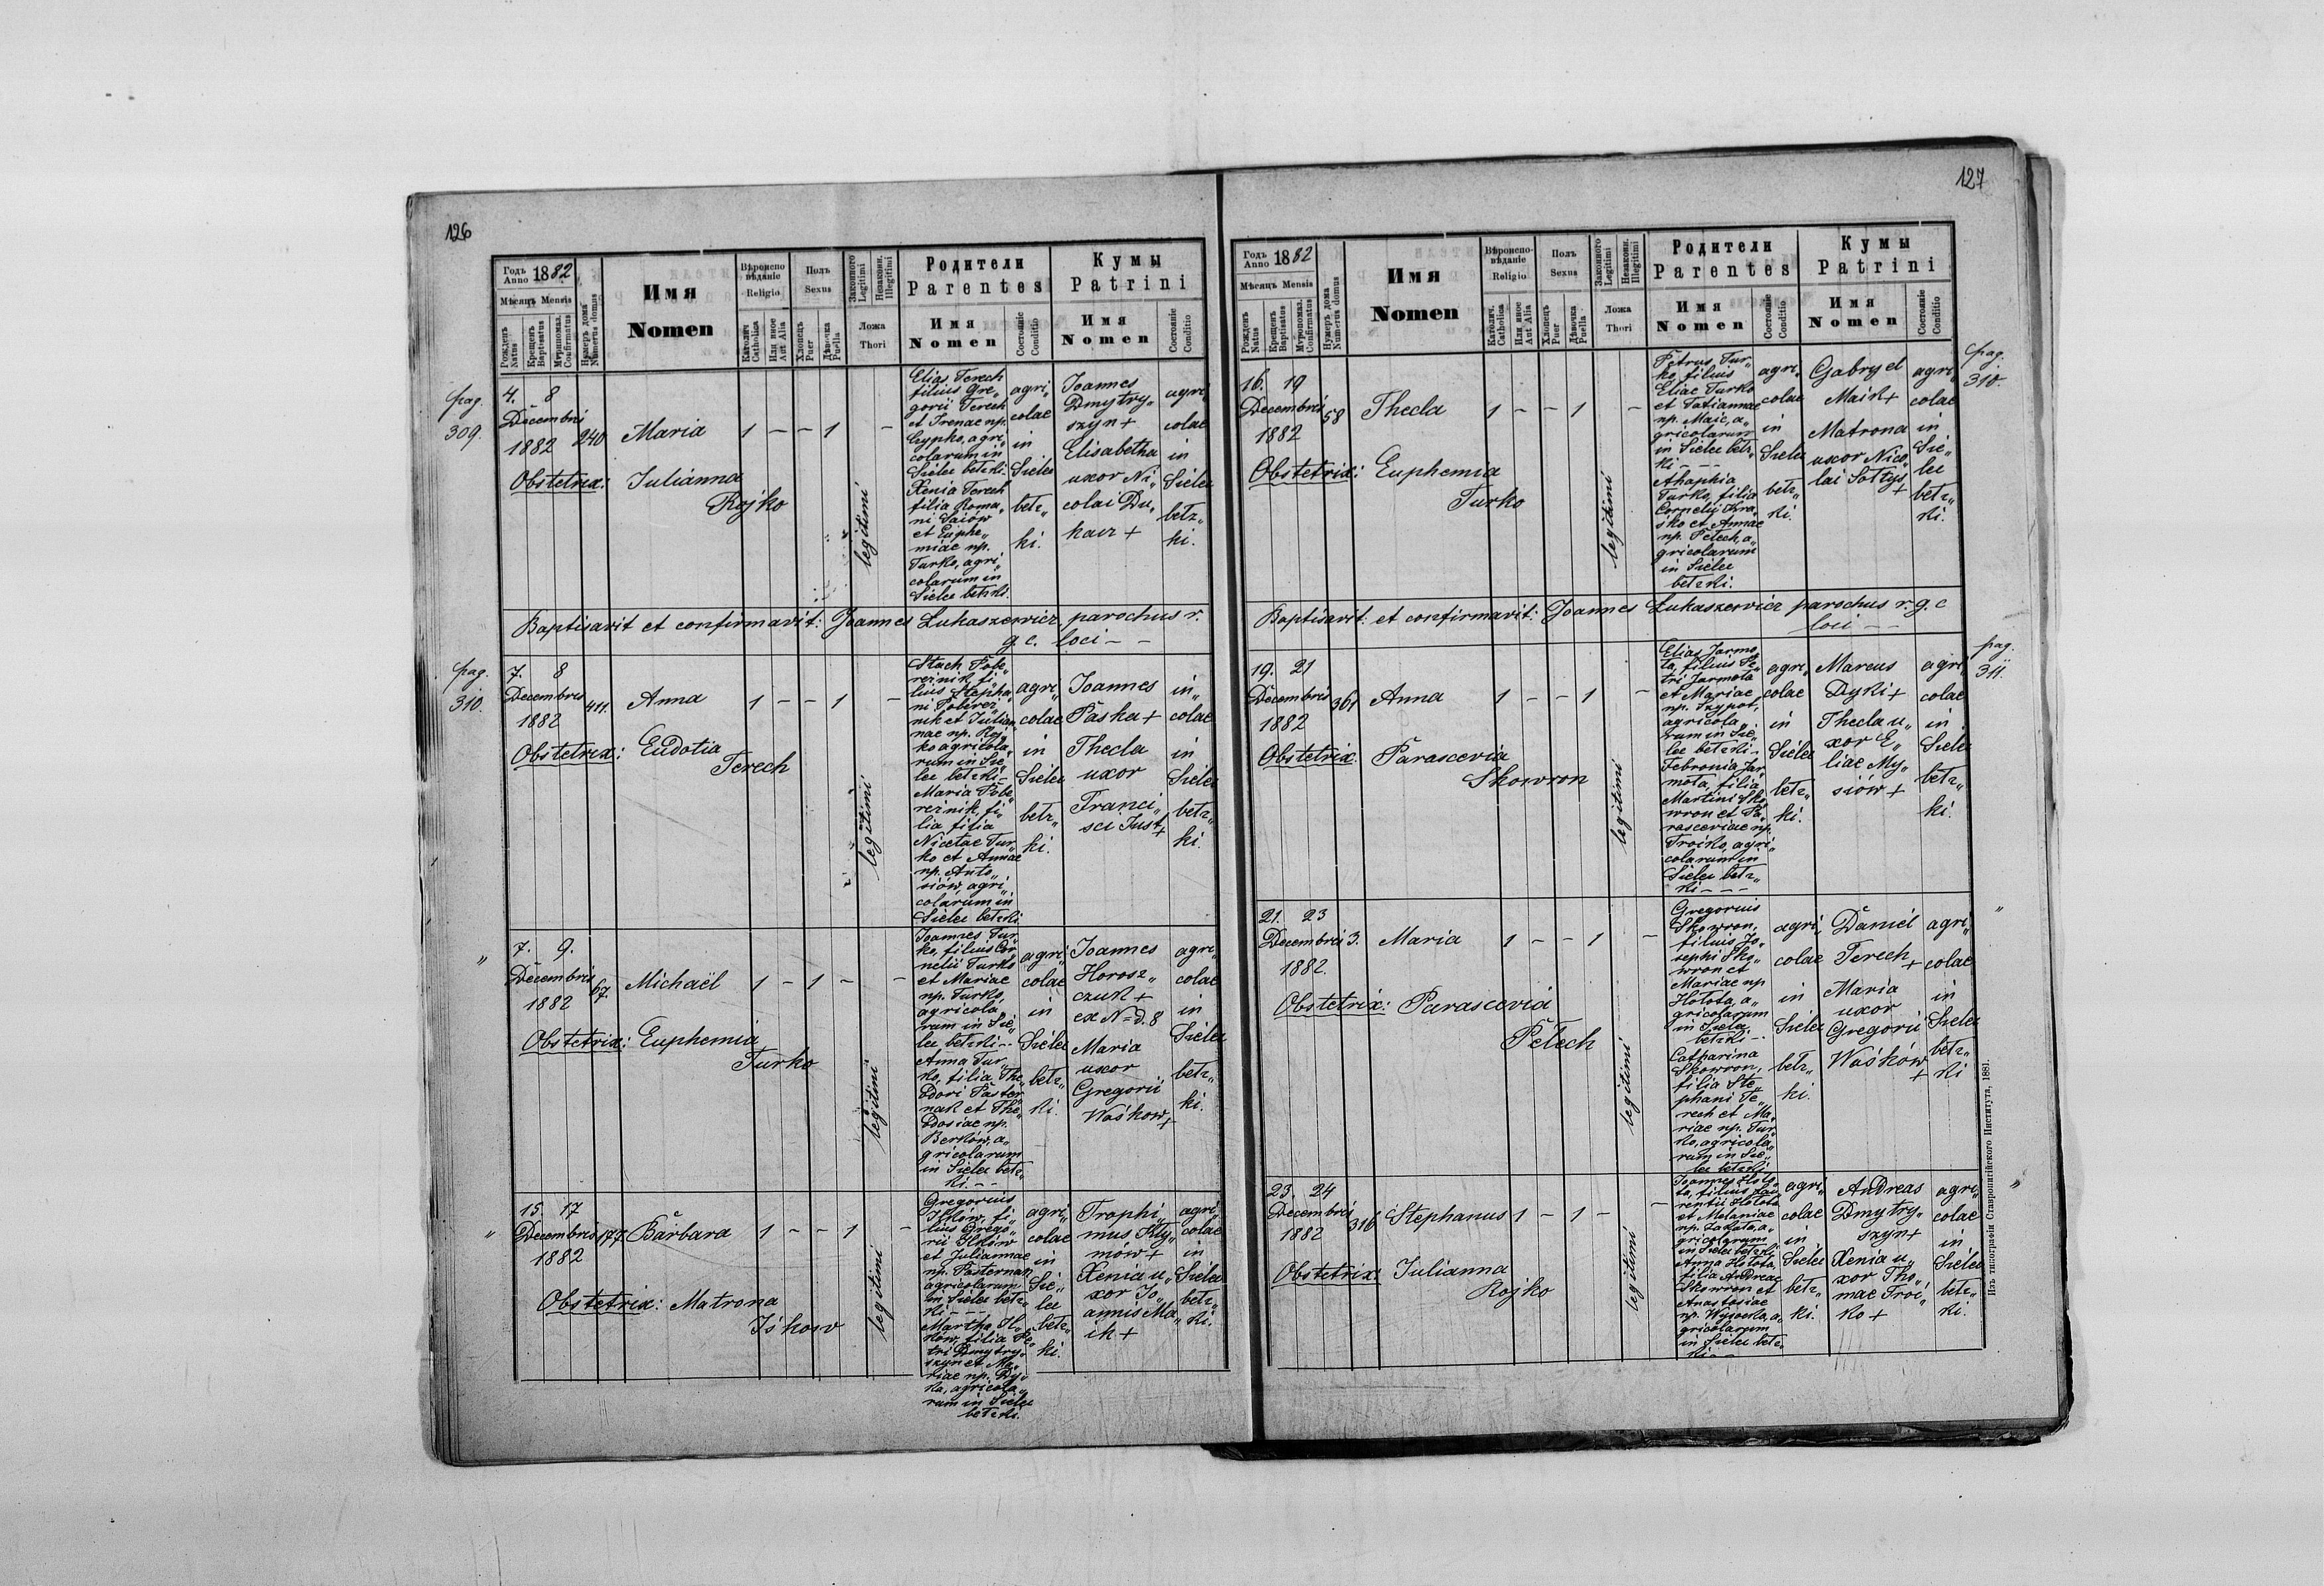 126
Годъ Anno 1882
Мѣсяцъ Mensis
Рожденъ Natus
Крещенъ Baptisatus
Мѵропомаз. Confirmatus
Нумеръ дома Numerus domus
Имя
Nomen
Вѣроисповѣданіе
Religio
Католич. Catholica
Или иное Aut Alia
Полъ
Sexus
Хлопецъ Puer
Дѣвочка Puella
Законного Legitimi
Незаконн. Illegitimi
Ложа
Thori
Родители
Parentes
Имя
Nomen
Состояніе Conditio
Кумы
Patrini
Имя
Nomen
Состояніе Conditio
pag.
309.
4. 8
Decembris
1882 240 Maria 1 - - 1 -
Obstetrix: Julianna
Rojko
legitimi
Elias Terech
filius Gre„
gorii Terech
et Irenae np.
Cypko, agri„
colarum in
Sielec bełzki.
Xenia Terech
filia Roma„
ni Saiów
et Euphe„
miae np.
Turko, agri„
colarum in
Sielec bełzki.
agri„
colae
in
Sielec
bełz„
ki.
Joannes
Dmytry„
szyn +
Elisabetha
uxor Ni„
colai Du„
kacz +
agri„
colae
in
Sielec
bełz„
ki.
Baptisavit et confirmavit: Joannes Łukaszewicz parochus r.
g. c. loci - -
pag.
310.
7. 8
Decembris
1882 411. Anna 1 - - 1 -
Obstetrix: Eudotia
Terech
legitimi
Stach Pobe„
reżnik, fi„
lius Stepha„
ni Pobereż„
nik et Julian„
nae np. Roj„
ko agricola„
rum in Sie„
lec bełzki -
Maria Pobe„
reżnik, fi„
lia filia
Nicetae Tur„
ko et Annae
np. Anto„
siów, agri„
colarum in
Sielec bełzki
agri„
colae
in
Sielec
bełz„
ki.
Joannes
Paska +
Thecla
uxor
Franci„
sci Just +
in„
colae
in
Sielec
bełz„
ki.
„
7. 9.
Decembris
1882 67. Michaël 1 - 1 - -
Obstetrix: Euphemia
Turko
legitimi
Joannes Tur„
ko, filius Cor„
nelii Turko
et Mariae
np. Turko,
agricola„
rum in Sie„
lec bełzki -
Anna Tur„
ko, filia The„
odori Paster„
nak et The„
odosiae np.
Berków, a„
gricolarum
in Sielec bełz„
ki. - -
agri„
colae
in
Sielec
bełz„
ki.
Joannes
Horosz„
czuk +
ex N=d. 8
Maria
uxor
Gregorii
Waśkow +
agri„
colae
in
Sielec
bełz„
ki.
„
15. 17
Decembris 177. Barbara 1 - - 1 -
1882
Obstetrix: Matrona
Iśkow
legitimi
Gregorius
Ilków, fi„
lius Grego„
rii Ilków
et Juliannae
np. Pasternak
agricolarum
in Sielec bełz„
ki - - -
Martha Il„
ków, filia Pe„
tri Dmytry„
szyn et Ma„
riae np. Dy„
ka, agricola„
rum in Sielec
bełzki.
agri„
colae
in
Sie„
lec
bełz„
ki.
Trophi„
mus Kly„
mów +
Xenia u„
xor Jo„
annis Ma„
ik +
agri„
colae
in
Sielec
bełz„
ki.
127
Годъ Anno 1882
Мѣсяцъ Mensis
Рожденъ Natus
Крещенъ Baptisatus
Мѵропомаз. Confirmatus
Нумеръ дома Numerus domus
Имя
Nomen
Вѣроисповѣданіе
Religio
Католич. Catholica
Или иное Aut Alia
Полъ
Sexus
Хлопецъ Puer
Дѣвочка Puella
Законного Legitimi
Незаконн. Illegitimi
Ложа
Thori
Родители
Parentes
Имя
Nomen
Состояніе Conditio
Кумы
Patrini
Имя
Nomen
Состояніе Conditio
pag.
310.
16. 19
Decembris 58 Thecla 1 - - 1 -
1882
Obstetrix: Euphemia
Turko
legitimi
Petrus Tur„
ko, filius
Eliae Turko
et Tatiannae
np. Maik, a„
gricolarum
in Sielec bełz„
ki - - -
Ahaphia
Turko, filia
Cornelij Kra„
śko et Annae
np. Petech, a„
gricolarum
in Sielec
bełzki.
agri„
colae
in
Sielec
bełz„
ki.
Gabryel
Maik +
Matrona
uxor Nico„
lai Sołtys +
agri„
colae
in
Sie„
lec
bełz„
ki.
Baptisavit et confirmavit: Joannes Łukaszewicz parochus r. g. c
loci - -
pag.
311.
19. 21
Decembris 361 Anna 1 - - 1 -
1882
Obstetrix: Parascevia
Skowron
legitimi
Elias Jarmo„
ta, filius Pe„
tri Jarmota
et Mariae
np. Szypot,
agricola„
rum in Sie„
lec bełzki -
Febronia Jar„
mota, filia
Martini Sko„
wron et Pa„
rasceviae np.
Troiko, agri„
colarum in
Sielec bełz„
ki - - -
agri„
colae
in
Sielec
bełz„
ki.
Marcus
Dyki +
Thecla u„
xor E„
liae My„
siów +
agri„
colae
in
Sielec
bełz„
ki.
„
21. 23
Decembris 3. Maria 1 - - 1 -
1882.
Obstetrix: Parascevia
Petech
legitimi
Gregorius
Skowron,
filius Jo„
sephi Sko„
wron et
Mariae np
Hołota, a„
gricolarum
in Sielec
bełzki -
Catharina
Skowron,
filia Ste„
phani Te„
rech et Ma„
riae np. Tur„
ko, agricola„
rum in Sie„
lec bełzki.
agri„
colae
in
Sielec
bełz„
ki.
Daniel
Terech +
Maria
uxor
Gregorii
Waśków +
agri„
colae
in
Sielec
bełz„
ki
„
23. 24
Decembris 316 Stephanus 1 - 1 - -
1882
Obstetrix: Julianna
Rojko
legitimi
Joannes Hoło„
ta, filius Lau„
rentii Hołota
et Melaniae
np. Zakała, a„
gricolarum
in Sielec bełzki
Anna Hołota,
filia Andreae
Skowron et
Anastasiae
np. Wysocka, a„
gricolarum
in Sielec bełz„
ki - -
agri„
colae
in
Sielec
bełz„
ki.
Andreas
Dmytry„
szyn +
Xenia u„
xor Tho„
mae Troi„
ko +
agri„
colae
in
Sielec
bełz„
ki.
Изъ типографіи Ставропигійского Института, 1881.